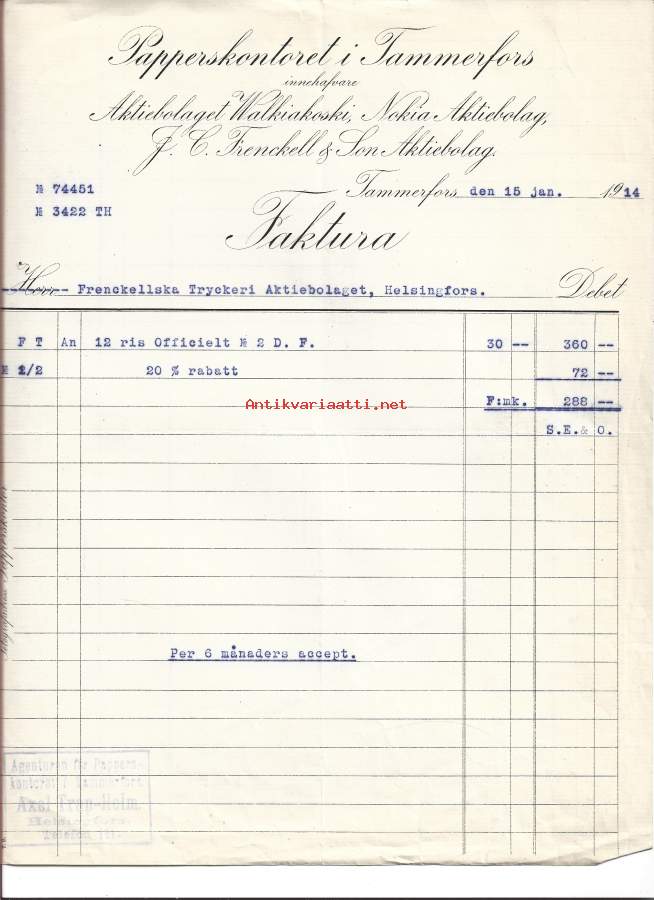 Papperskontoret i Tammerfors
innehafvare
Aktiebolaget Walkiakoski, Nokia Aktiebolag,
J. C. Frenckell & Son Aktiebolag.
№ 74451
Tammerfors den 15 jan. 1914
№ 3422 TH
Faktura
Herr Frenckellska Tryckeri Aktiebolaget, Helsingfors. Debet
F T An 12 ris Officielt № 2 D. F. 30 -- 360 --
№ 1/2 20 % rabatt 72 --
Antikvariaatti.net
F:mk. 288 --
S.E.& O.
Per 6 månaders accept.
Agenturen för Pappers-
kontoret i Tammerfors
Axel Trap-Holm
Helsingfors
Telefon